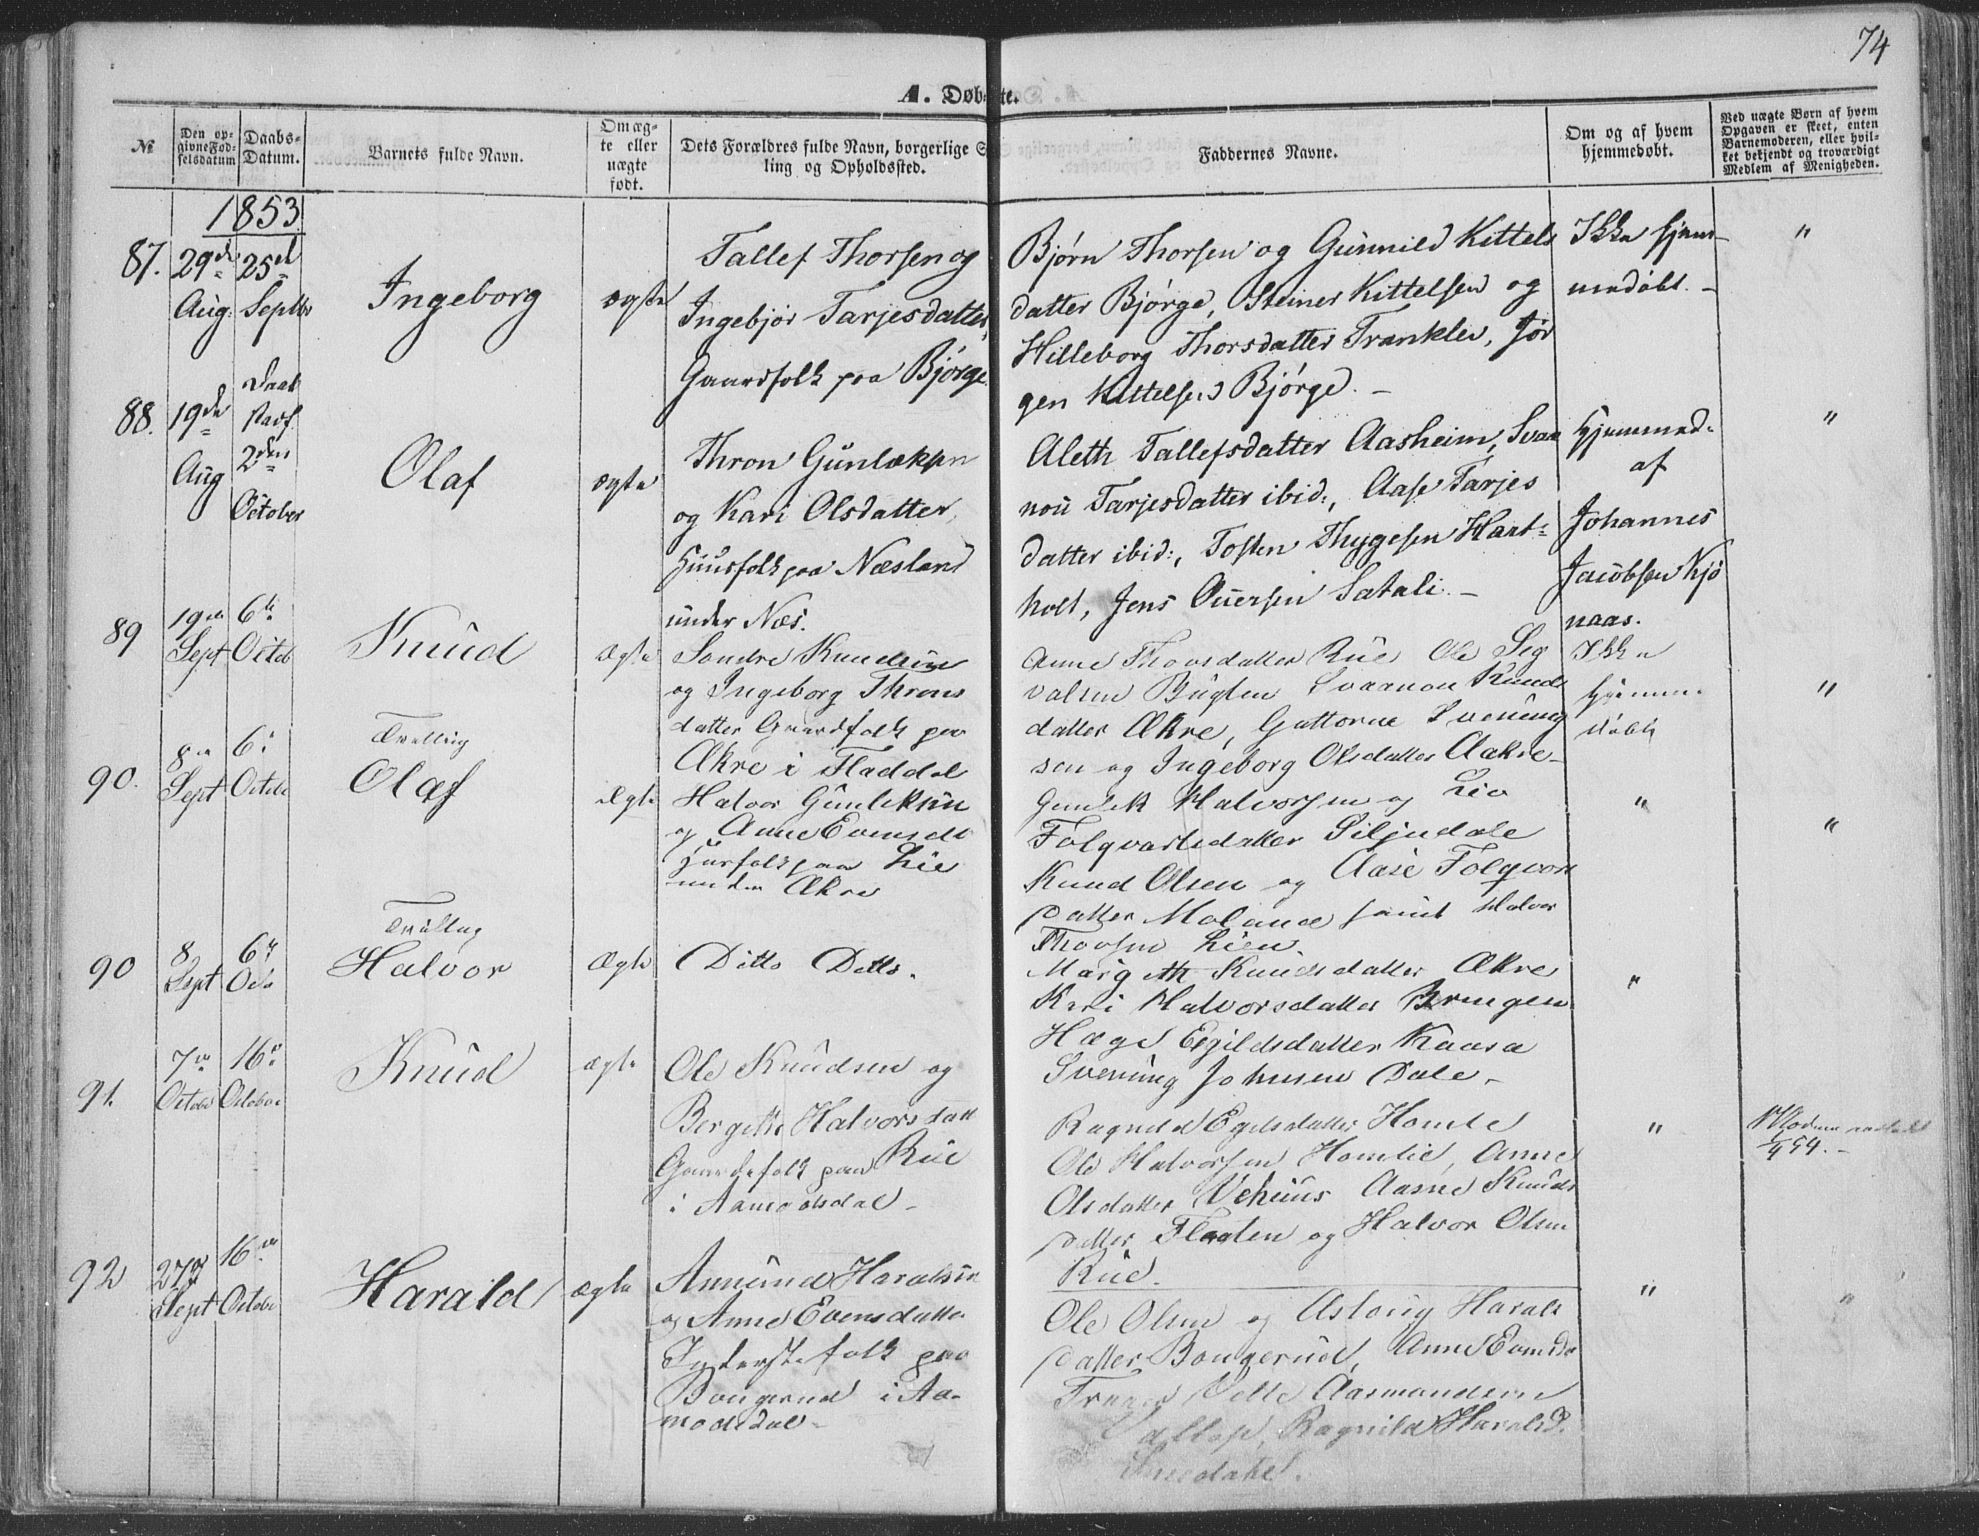 74
A. Døbte.
№
Den opgivne Fødselsdatum
Daabs-Datum.
Barnets fulde Navn.
Om ægte eller uægte født.
Dets Forældres fulde Navn, borgerlige Stilling og Opholdssted.
Faddernes Navne.
Om og af hvem hjemmedøbt.
Ved uægte Børn af hvem Opgaven er skeet, enten Barnemoderen, eller hvilket bekjendt og troværdigt Medlem af Menigheden.
1853
87. 29de Aug. 25de Septbr
Ingeborg
ægte
Tallef Thorsen og
Ingebjør Tarjesdatter,
Gaardfolk paa Bjørge
Bjørn Thorsen og Gunnild Kittels
datter Bjørge, Steiner Kittelsen og
Hilleborg Thorsdatter Tranklev, Jør
gen Kittelsen Bjørge. –
Ikke hjem-
medøbt. –
"
88. 19de Aug
2den October
Olaf
ægte
Thron Gunlæksen
og Kari Olsdatter,
Huusfolk paa Næsland
under Næs.
Aleth Tallefsdatter Aasheim, Svan
nou Tarjesdatter ibid:, Aase Tarjes
datter ibid:, Tosten Thygesen Hart-
holt, Jens Ouersen Satali. –
Hjemmed:
af
Johannes
Jacobsen Kjø
naas.
"
89 19de Sept 6te Octob
Knud
Ægte
Sondre Knudsen
og Ingeborg Throns
datter Gaardfolk paa
Ækre i Fladdal
Anne Thorsdatter Rue Ole Seg
valsen Bugten Svaanou Knuds
datter Ækre, Guttorm Svening
sen og Ingeborg Olsdatter Aakre –
Ikke
hjemme
døbt
"
90. 8de Sept 6te Octob
Tvilling
Olaf
Ægte
Halvor Gunleksen
og Anne Evensdt
Husfolk paa Lie
under Ækre
Gunlek Halvorsen og Liv
Folqvarsdatter Siljudale
Knud Olsen og Aase Folqvars
datter Moland samt Halvor
Thorsen Lien.
"
"
90 8 Sept 6te Octo
Tvilling
Halvor
Ægte
Ditto Ditto.
Margith Knudsdatter Ækre
Kari Halvorsdatter Bringen
Hæge Egildsdatter Kaasa
Svening Johnsen Dale –
"
91. 7de Octobr 16de October
Knud
ægte
Ole Knudsen og
Bergith Halvorsdatt
Gaardfolk paa Rue
i Aamodsdal –
Ragnild Egilsdatter Homle
Ole Halvorsen Homlie, Anne
Olsdatter Vehuus Aasne Knuds
datter Flaaten og Halvor Olsen
Rue.
"
92 27de Sept 16de Octobr
Harald
ægte
Anmund Haralsen
og Anne Evensdatter
Inderstefolk paa
Bongerud i Aa-
modsdal –
Ole Olsen og Aslaug Harals
datter Bongerud, Anne Evensdr
Vetle Aasmundsen
Ragnild Haralsd.
"
"